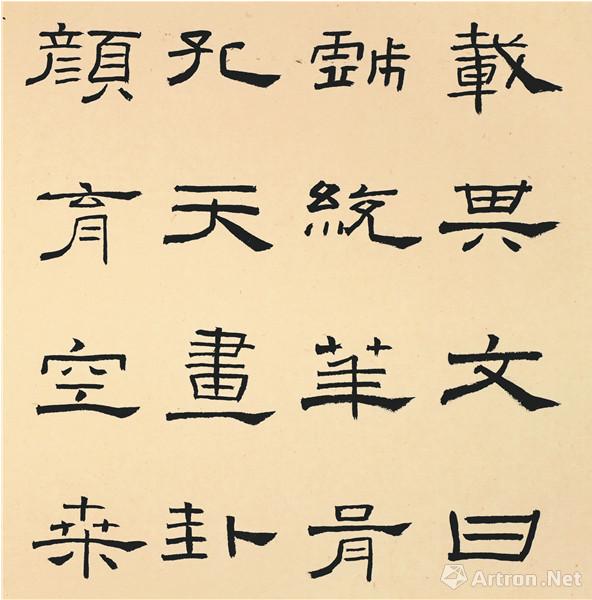 載其文曰
戲統華胥
孔天畫卦
顏育空桑
Artron.Net